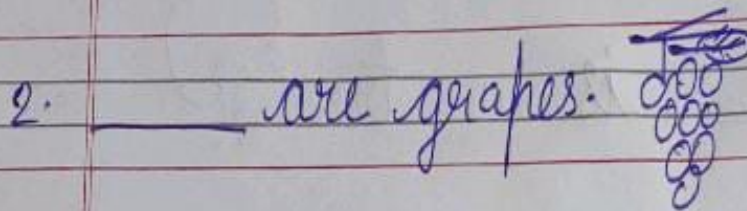 2. _____ are grapes.